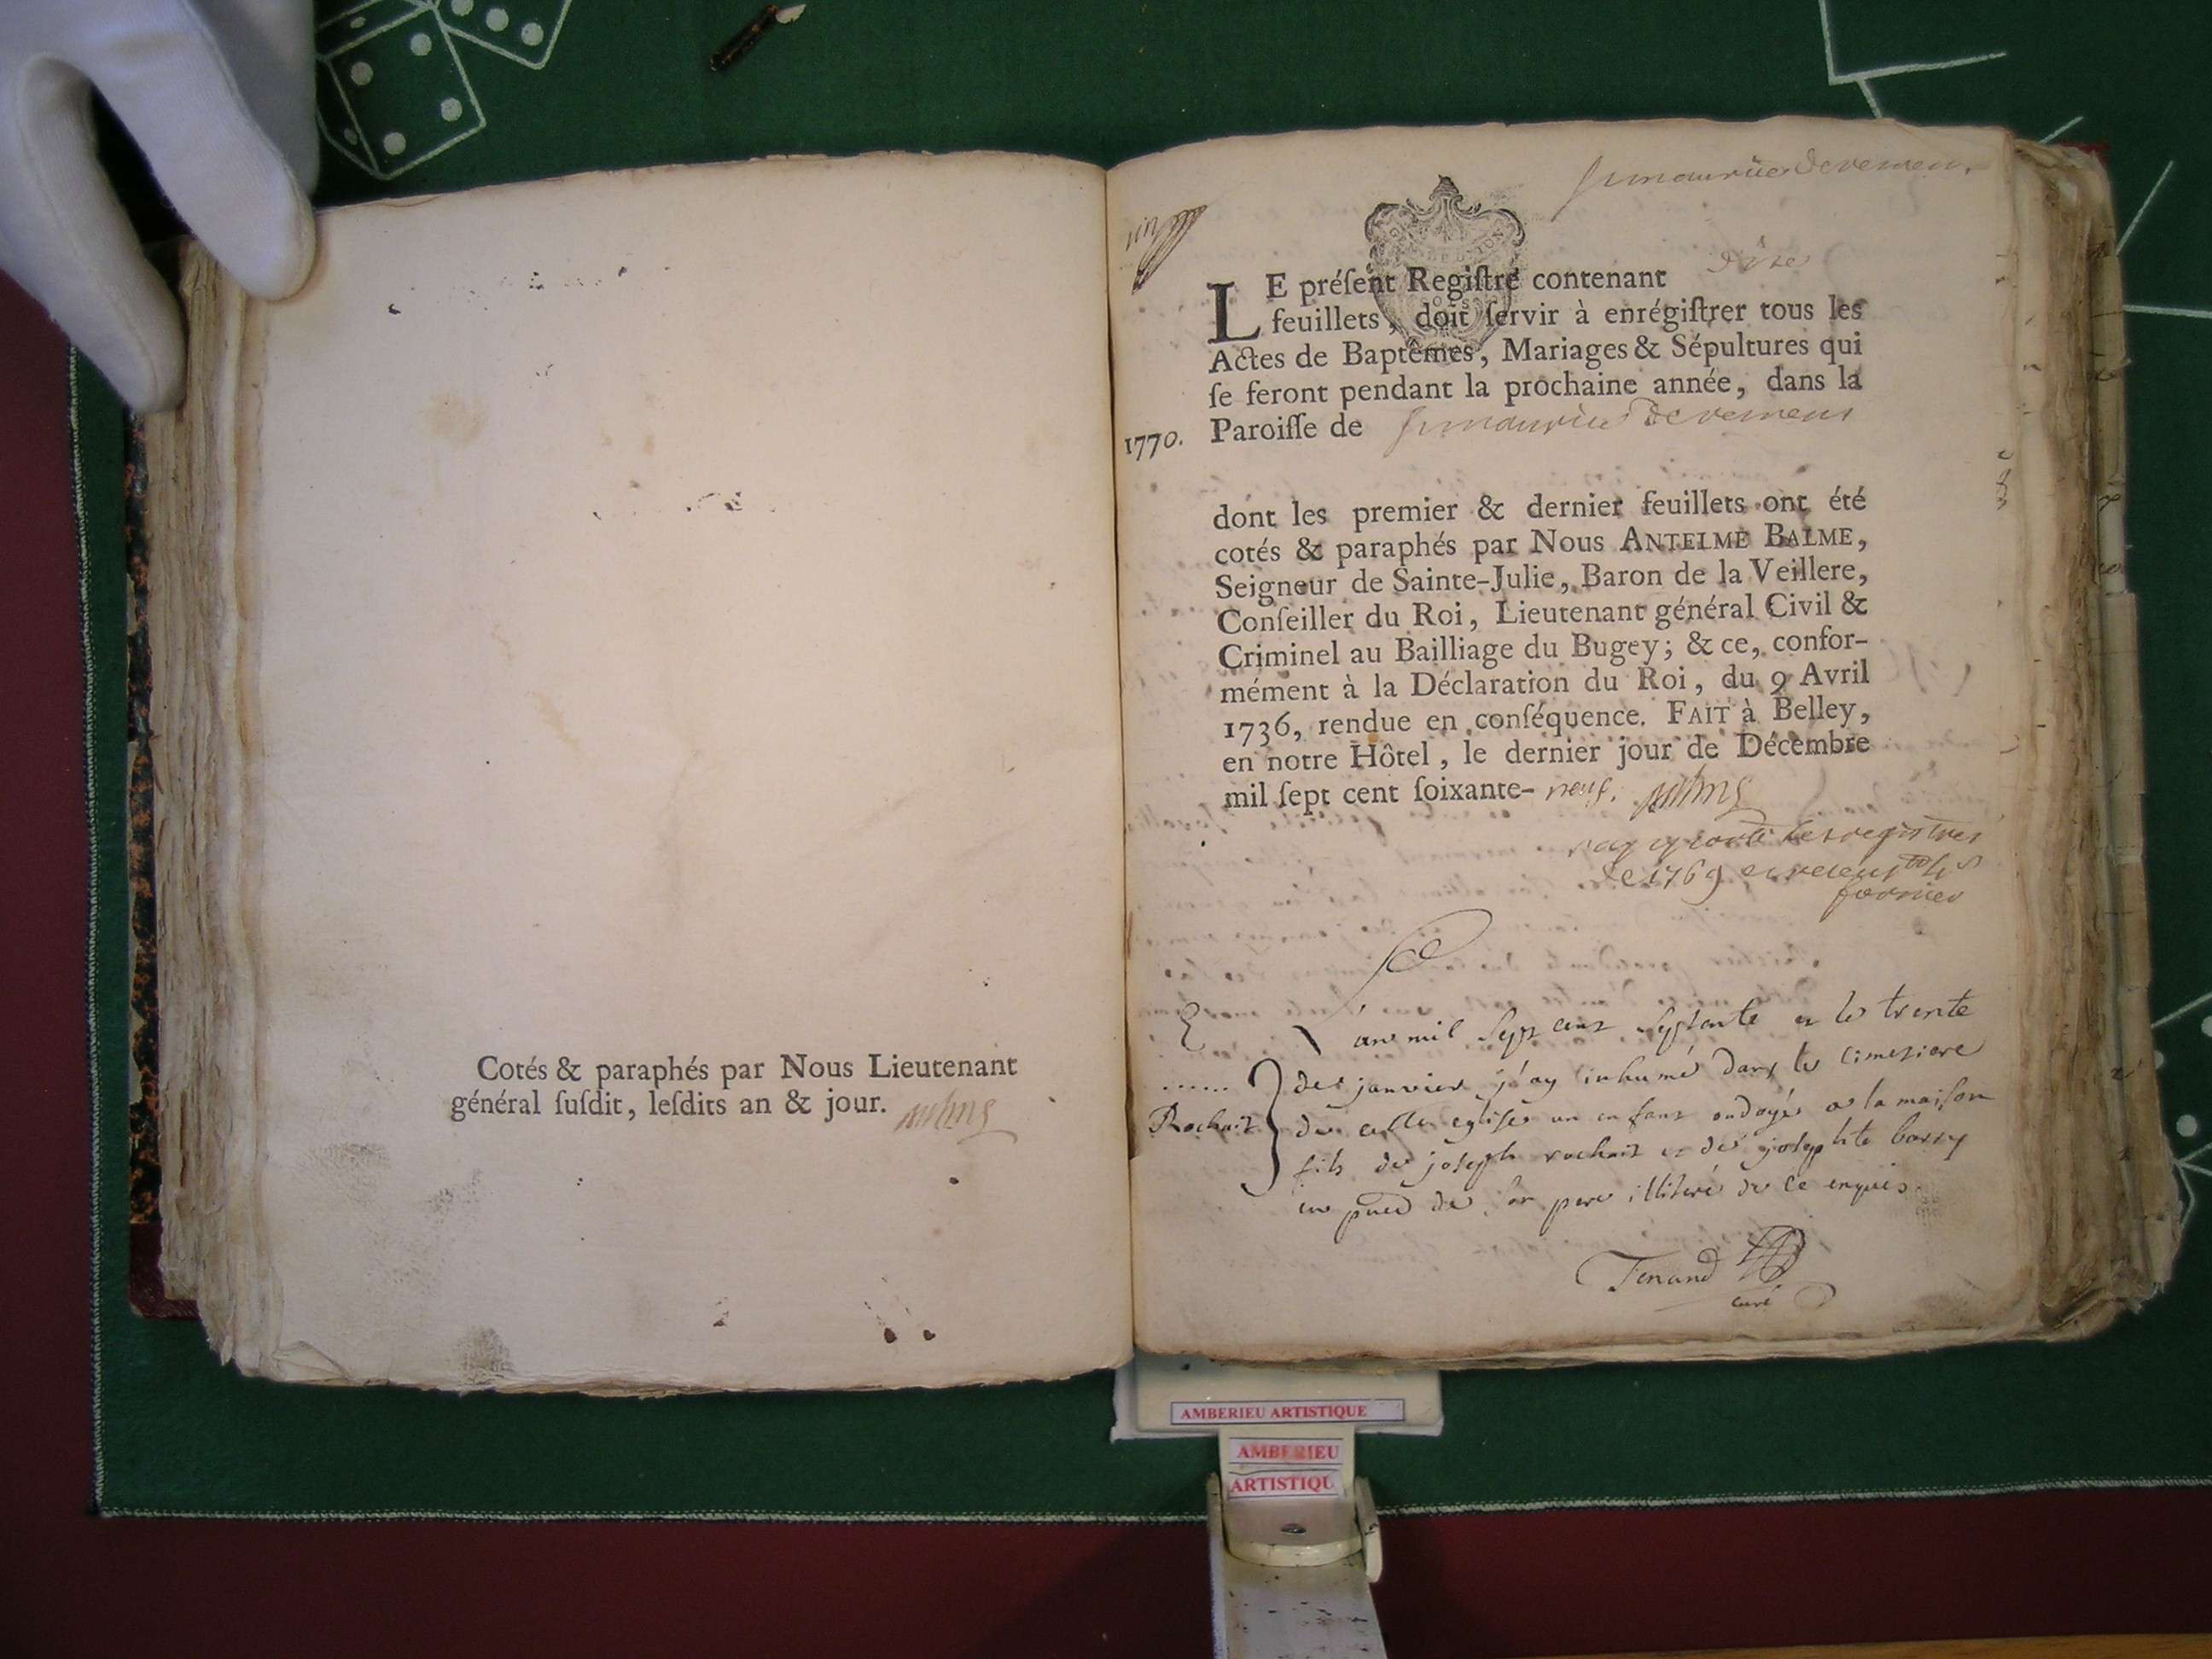 Cotés & paraphés par Nous Lieutenant
général ſuſdit, leſdits an & jour.
LE préſent Regiſtre contenant
feuillets, doit ſervir à enrégiſtrer tous les
Actes de Baptêmes, Mariages & Sépultures qui
ſe feront pendant la prochaine année, dans la
1770. Paroiſſe de
dont les premier & dernier feuillets ont été
cotés & paraphés par Nous ANTELME BALME,
Seigneur de Sainte-Julie, Baron de la Veillere,
Conſeiller du Roi, Lieutenant général Civil &
Criminel au Bailliage du Bugey; & ce, confor-
mément à la Déclaration du Roi, du 9 Avril
1736, rendue en conſéquence. FAIT à Belley,
en notre Hôtel, le dernier jour de Décembre
mil ſept cent ſoixante- neuf.
les registres
de 1769
L'an mil sept cent septante et le trente
de janvier j'ay inhumé dans le cimetiere
Rochaix de cette eglise un enfant ondoyé a la maison
fils de joseph rochaix et de josephte
en de son pere illiteré de ce enquis.
Tenand
curé
AMBERIEU ARTISTIQUE
AMBERIEU
ARTISTIQU